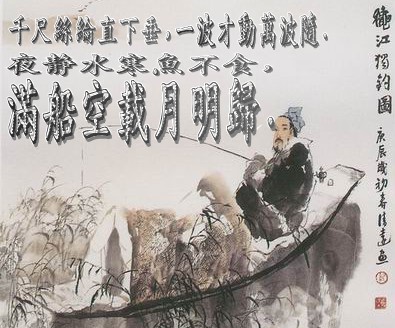 千尺絲綸直下垂,一波才動萬波隨.
夜静水寒魚不食,
滿船空載月明歸.
江獨釣圖
庚辰歲初春